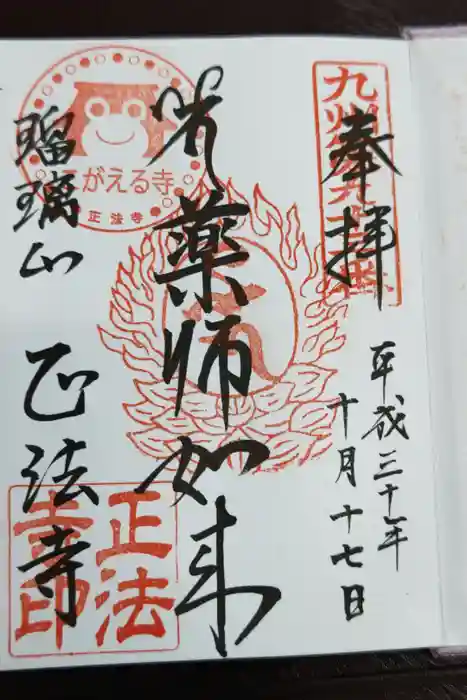 奉拝
平成三十年
十月十七日
薬師如来
瑠璃山
正法寺
がえる寺
正法寺
正法寺印